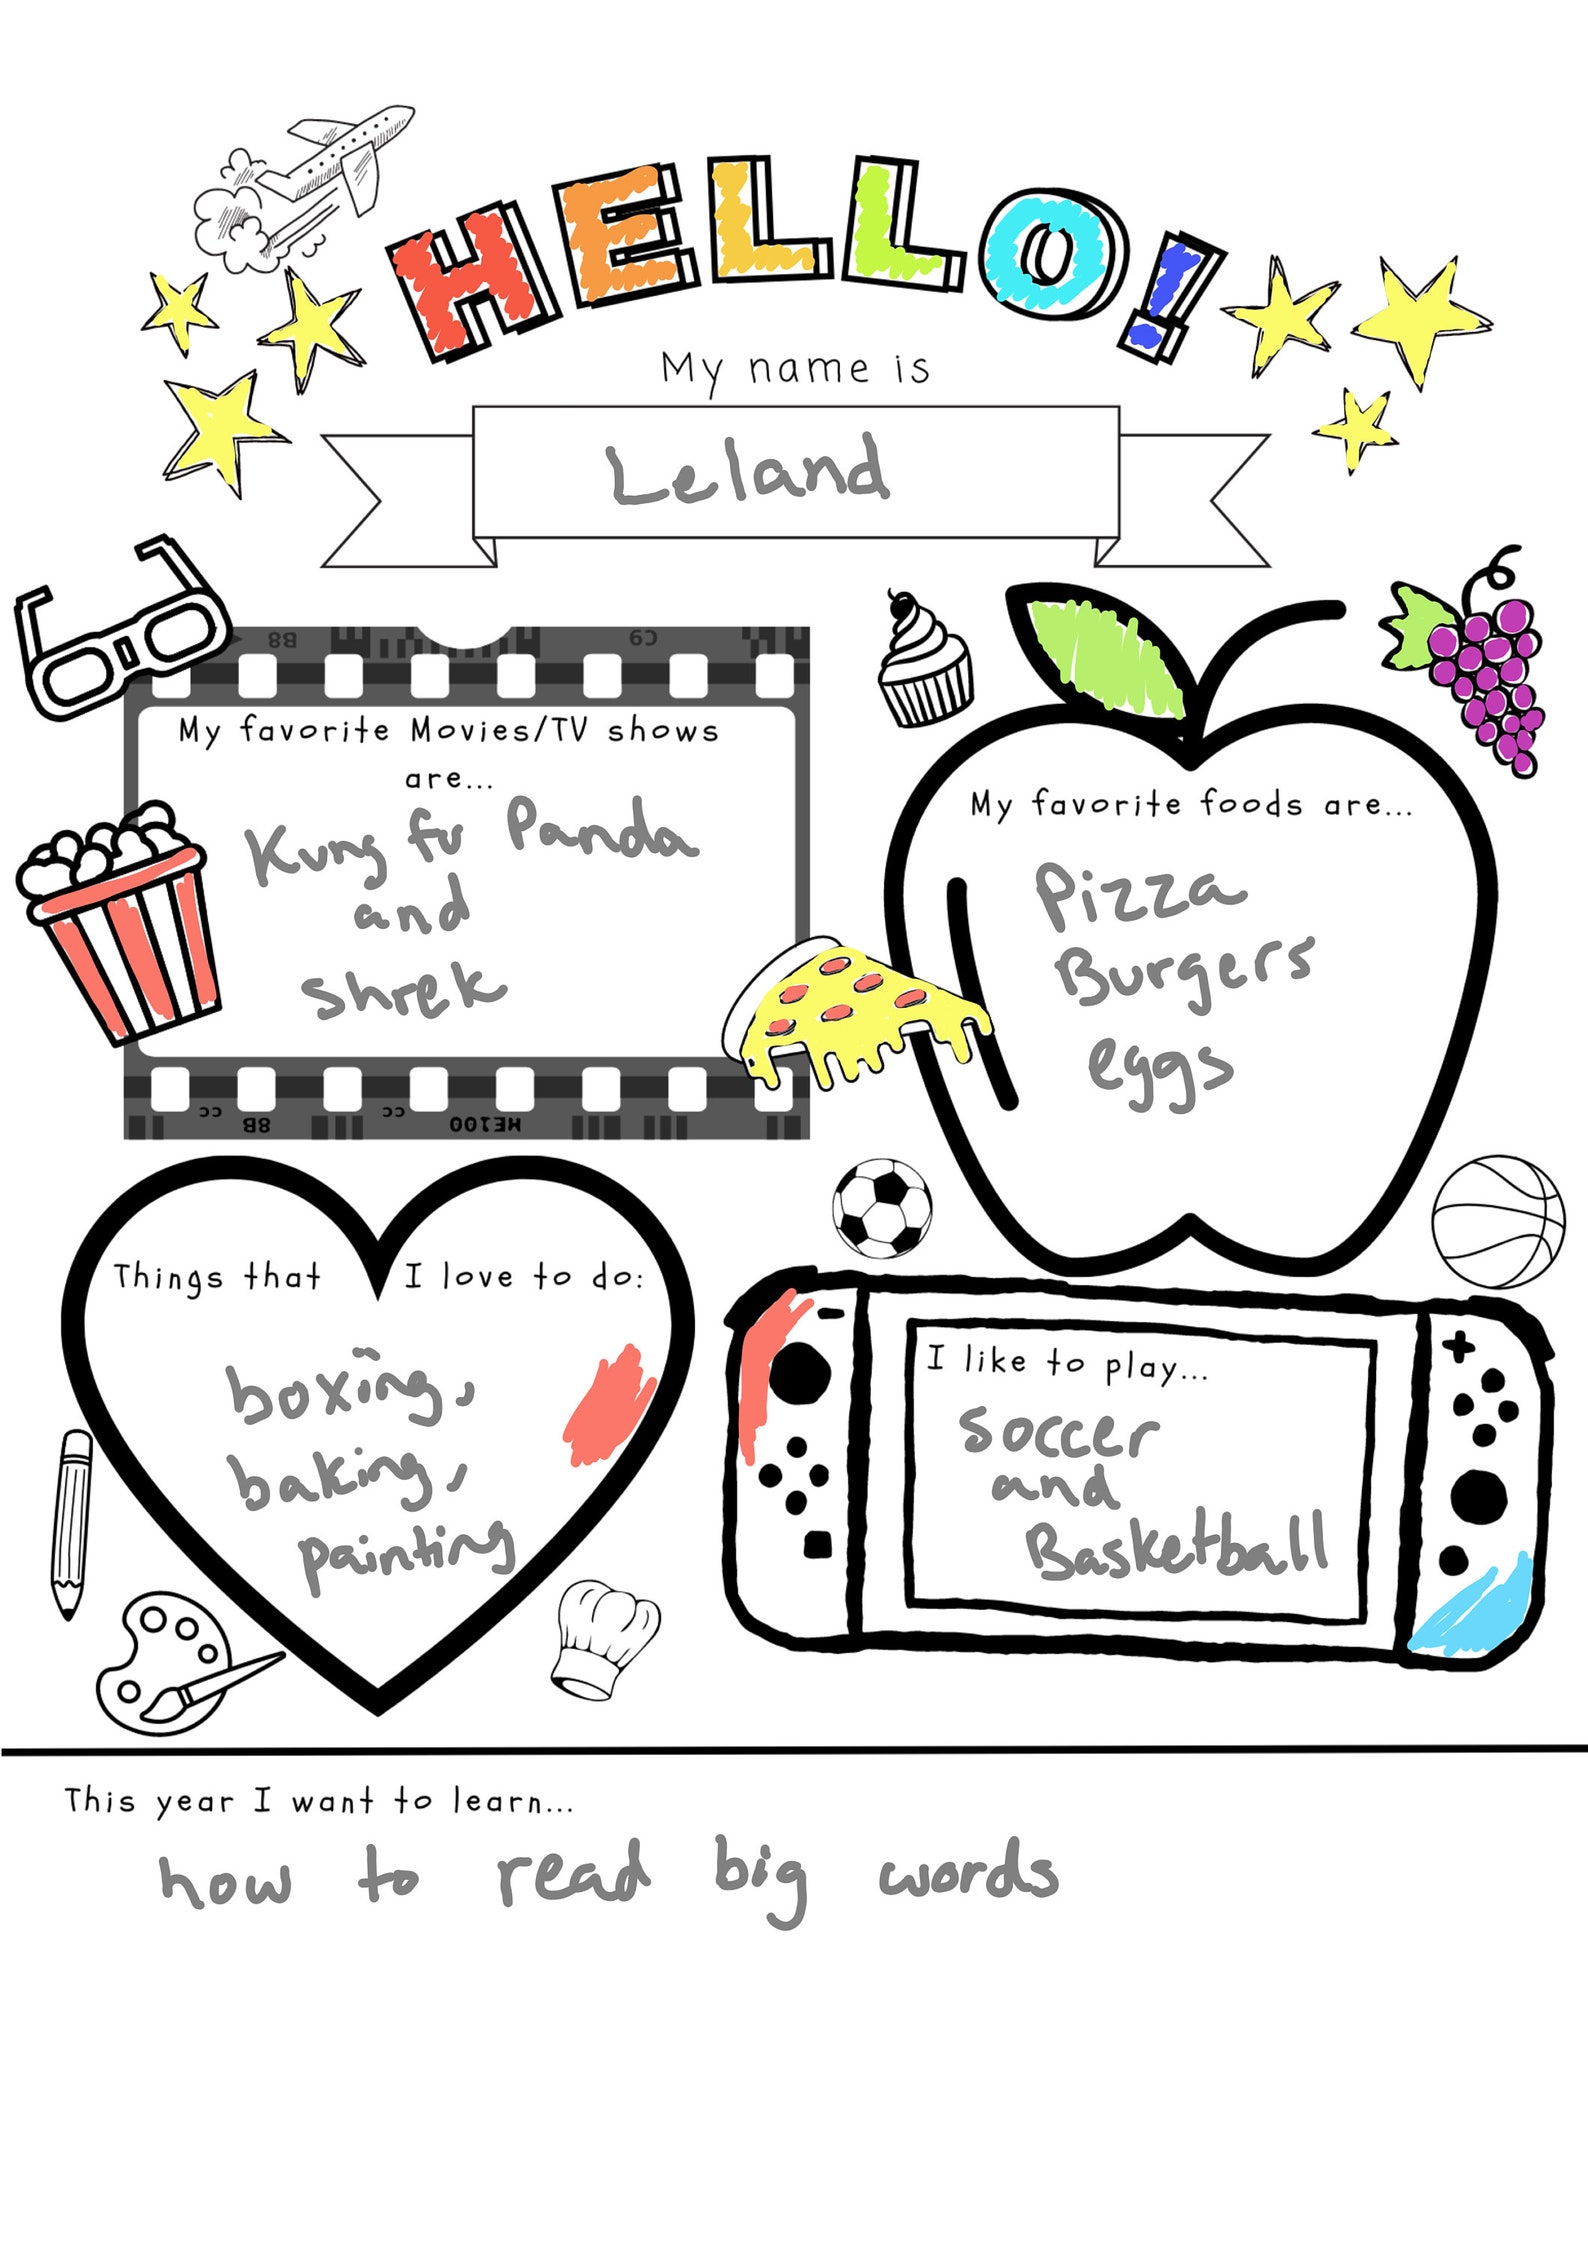 HELLO!
My name is
Leland
B8
C9
My favorite Movies/TV shows
are...
Kung fu Panda
and
Shrek
CC
8B
CC
HE100
My favorite foods are...
Pizza
Burgers
eggs
Things that I love to do:
boxing,
baking,
painting
I like to play...
soccer
and
Basketball
This year I want to learn...
how to read big words